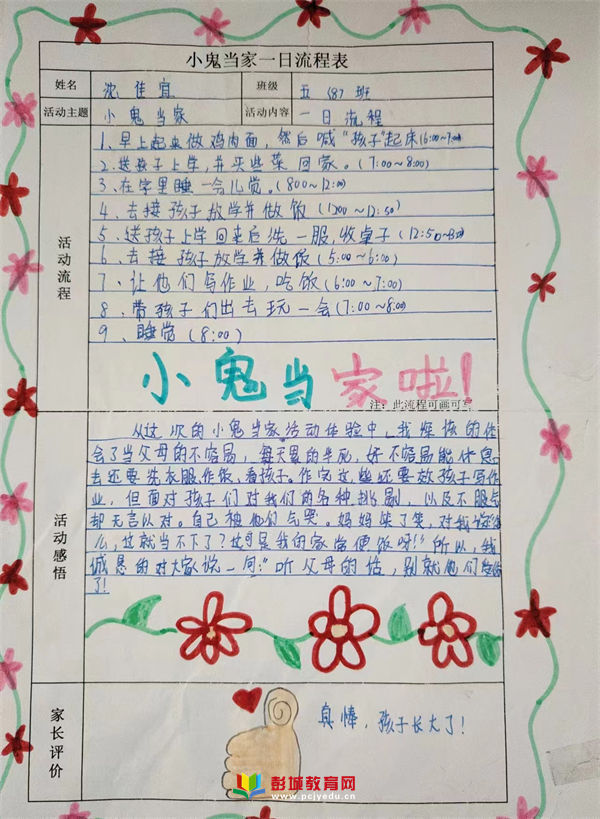 小鬼当家一日流程表
姓名 沈佳宜 班级 五(8)班
活动主题 小鬼当家 活动内容 一日流程
活动流程
1、早上起来做鸡肉面，然后喊"孩子"起床(6:00~7:00)
2、送孩子上学,并买些菜回家。(7:00~8:00)
3、在字里睡一会儿觉。(800~12:00)
4、去接孩子放学并做饭(1200~12:50)
5、送孩子上学回来后洗一服,收桌子(12:50~
6、去接孩子放学并做饭(5:00~6:00)
7、让他们写作业,吃饭(6:00~7:00)
8、带孩子们出去玩一会(7:00~8:00)
9、睡觉(8:00)
小鬼当家啦!
注：此流程可画可写
活动感悟
从这次的小鬼当家活动体验中,我深深的体
会了当父母的不容易,每天累的半死,好不容易能休息
去还要洗衣服作饭、看孩子。作完这些还要教孩子写作
业,但面对孩子们对我们的各种挑剔,以及不服气
却无言以对。自己被他们气哭。妈妈笑了笑,对我说
么,这就当不下了?这可是我的家常便饭呀!!所以,我
诚恳的对大家说一同:"听父母的话,别就他们
了!
家长评价
真棒，孩子长大了!
彭城教育网
www.pcjyedu.cn